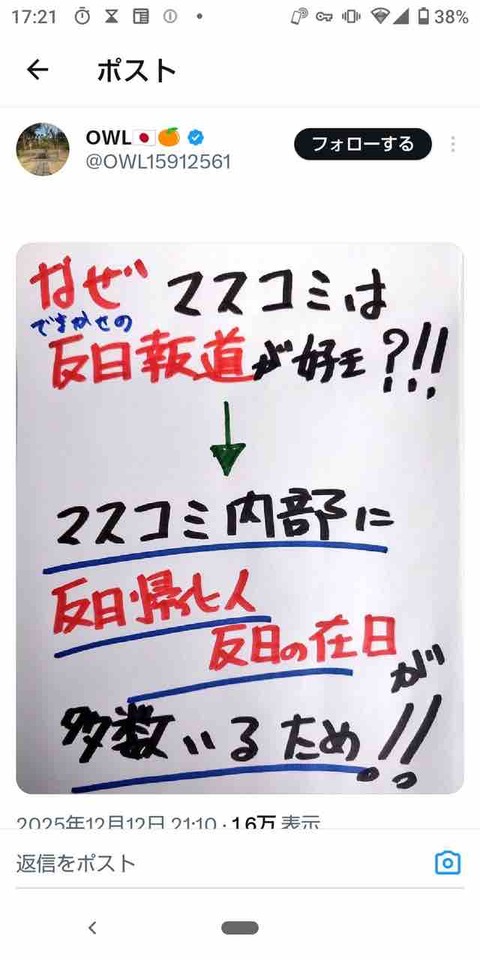 17:21
38%
ポスト
OWL🇯🇵🍊
@OWL15912561
フォローする
なぜ マスコミは
でまかせの
反日報道が好き?!!
マスコミ内部に
反日帰化人
反日の在日が
多数いるため!!
2025年12月12日 21:10 · 1.6万 表示
返信をポスト